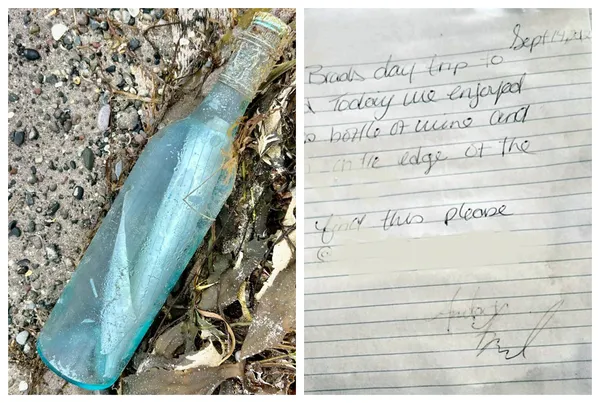 Sept 14, 2012
Brads day trip to
Today we enjoyed
bottle of wine and
on the edge of the
find this please
@
Anita
Brad